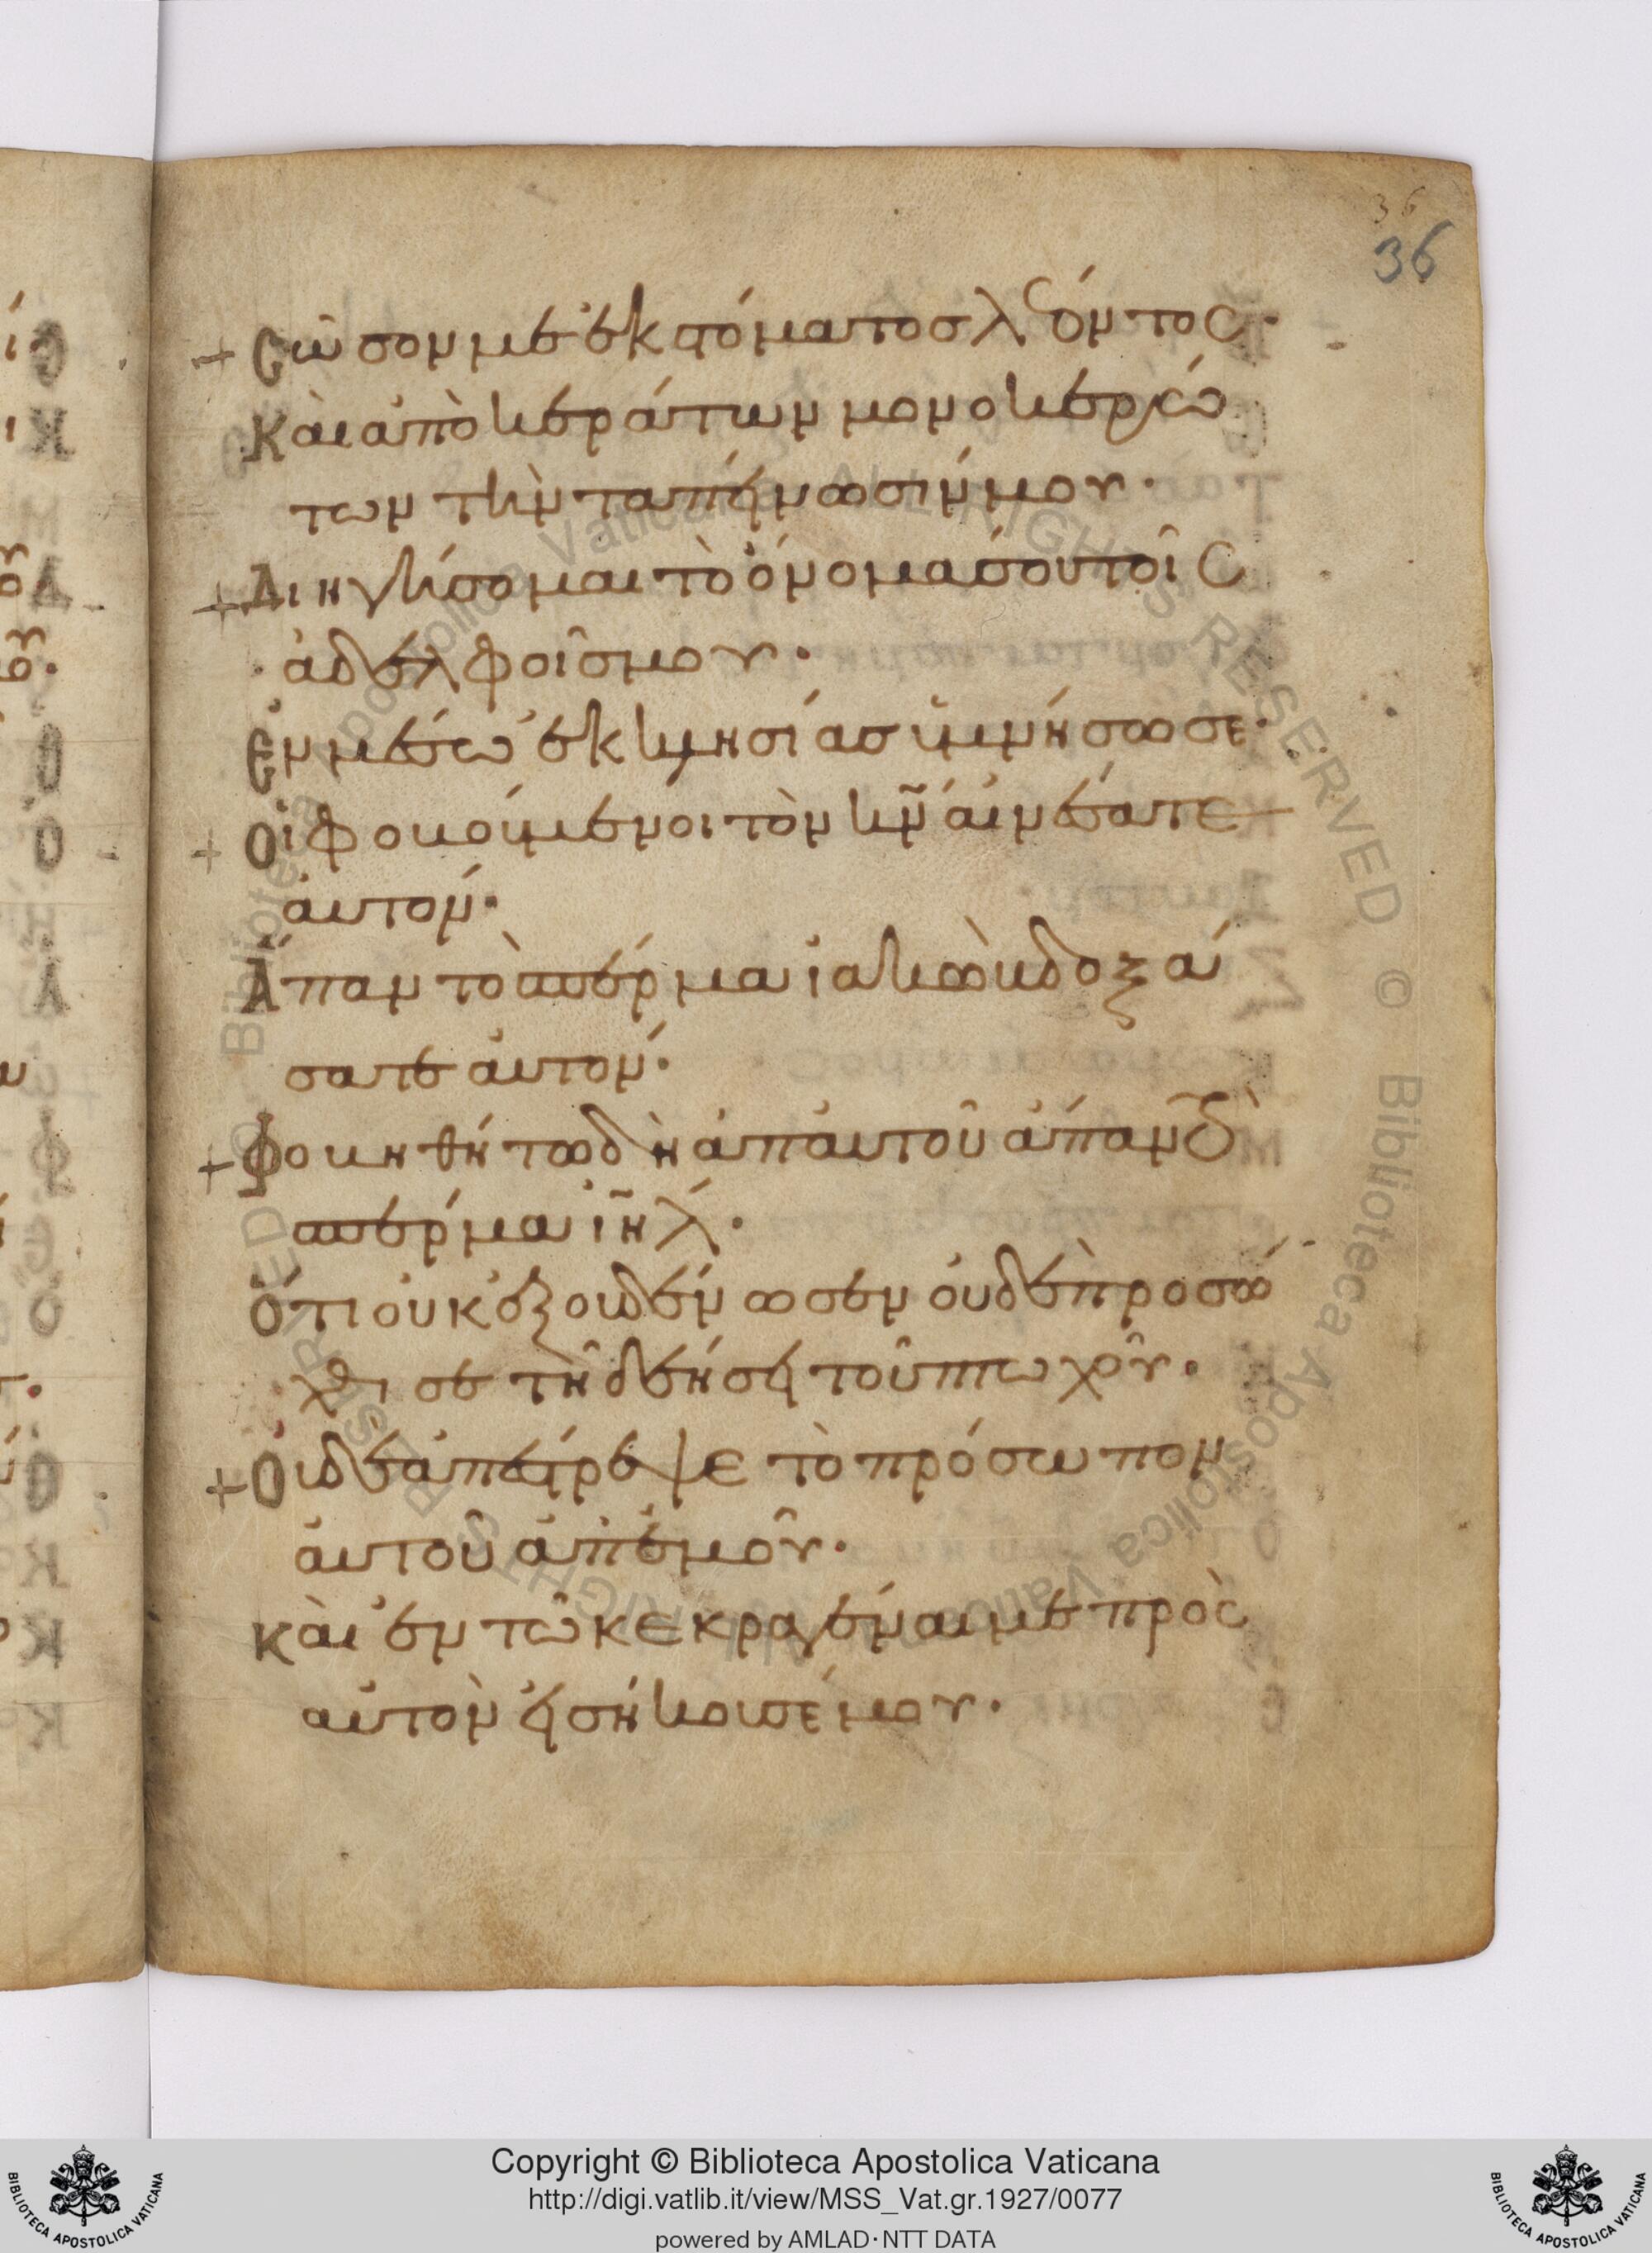 36
36
+ Σῶσον με ἐκ στόματοσ λέοντος·
Κὰι ἀπὸ κεράτων μονοκερώ
των τὴν ταπείνωσίν μου·
+ Διηγήσομαι τὸ ὄνομα σου τοῖς
ἀδελφοῖσ μου·
Ἐν μέσω ἐκκλησίασ ὑμνήσω σε·
+ Οἱ φοβούμενοι τὸν κ̅ν̅ ἀινέσατε
ἀυτον·
Ἅπαν τὸ σπέρμα ϊακὼβ δοξά
σατε ἀυτον·
+ Φοβηθήτω δὴ ἀπ ἀυτοῦ ἅπαν τὸ
σπέρμα ι̅η̅λ̅·
Ὅτι οὐκ ἐξουδένωσεν ὀυδὲ προσώ
χθισε τῆ δεήσει τοῦ πτωχοῦ·
+ Ουδὲ ἀπέστρεψε τὸ πρόσωπον
ἀυτοῦ ἀπ ἐμοῦ·
Κὰι ἐν τῶ κεκραγέναι με πρὸς
αὐτὸν εἰσήκουσέ μου·
Copyright © Biblioteca Apostolica Vaticana
http://digi.vatlib.it/view/MSS_Vat.gr.1927/0077
powered by AMLAD·NTT DATA
BIBLIOTECA APOSTOLICA VATICANA
BIBLIOTECA APOSTOLICA VATICANA